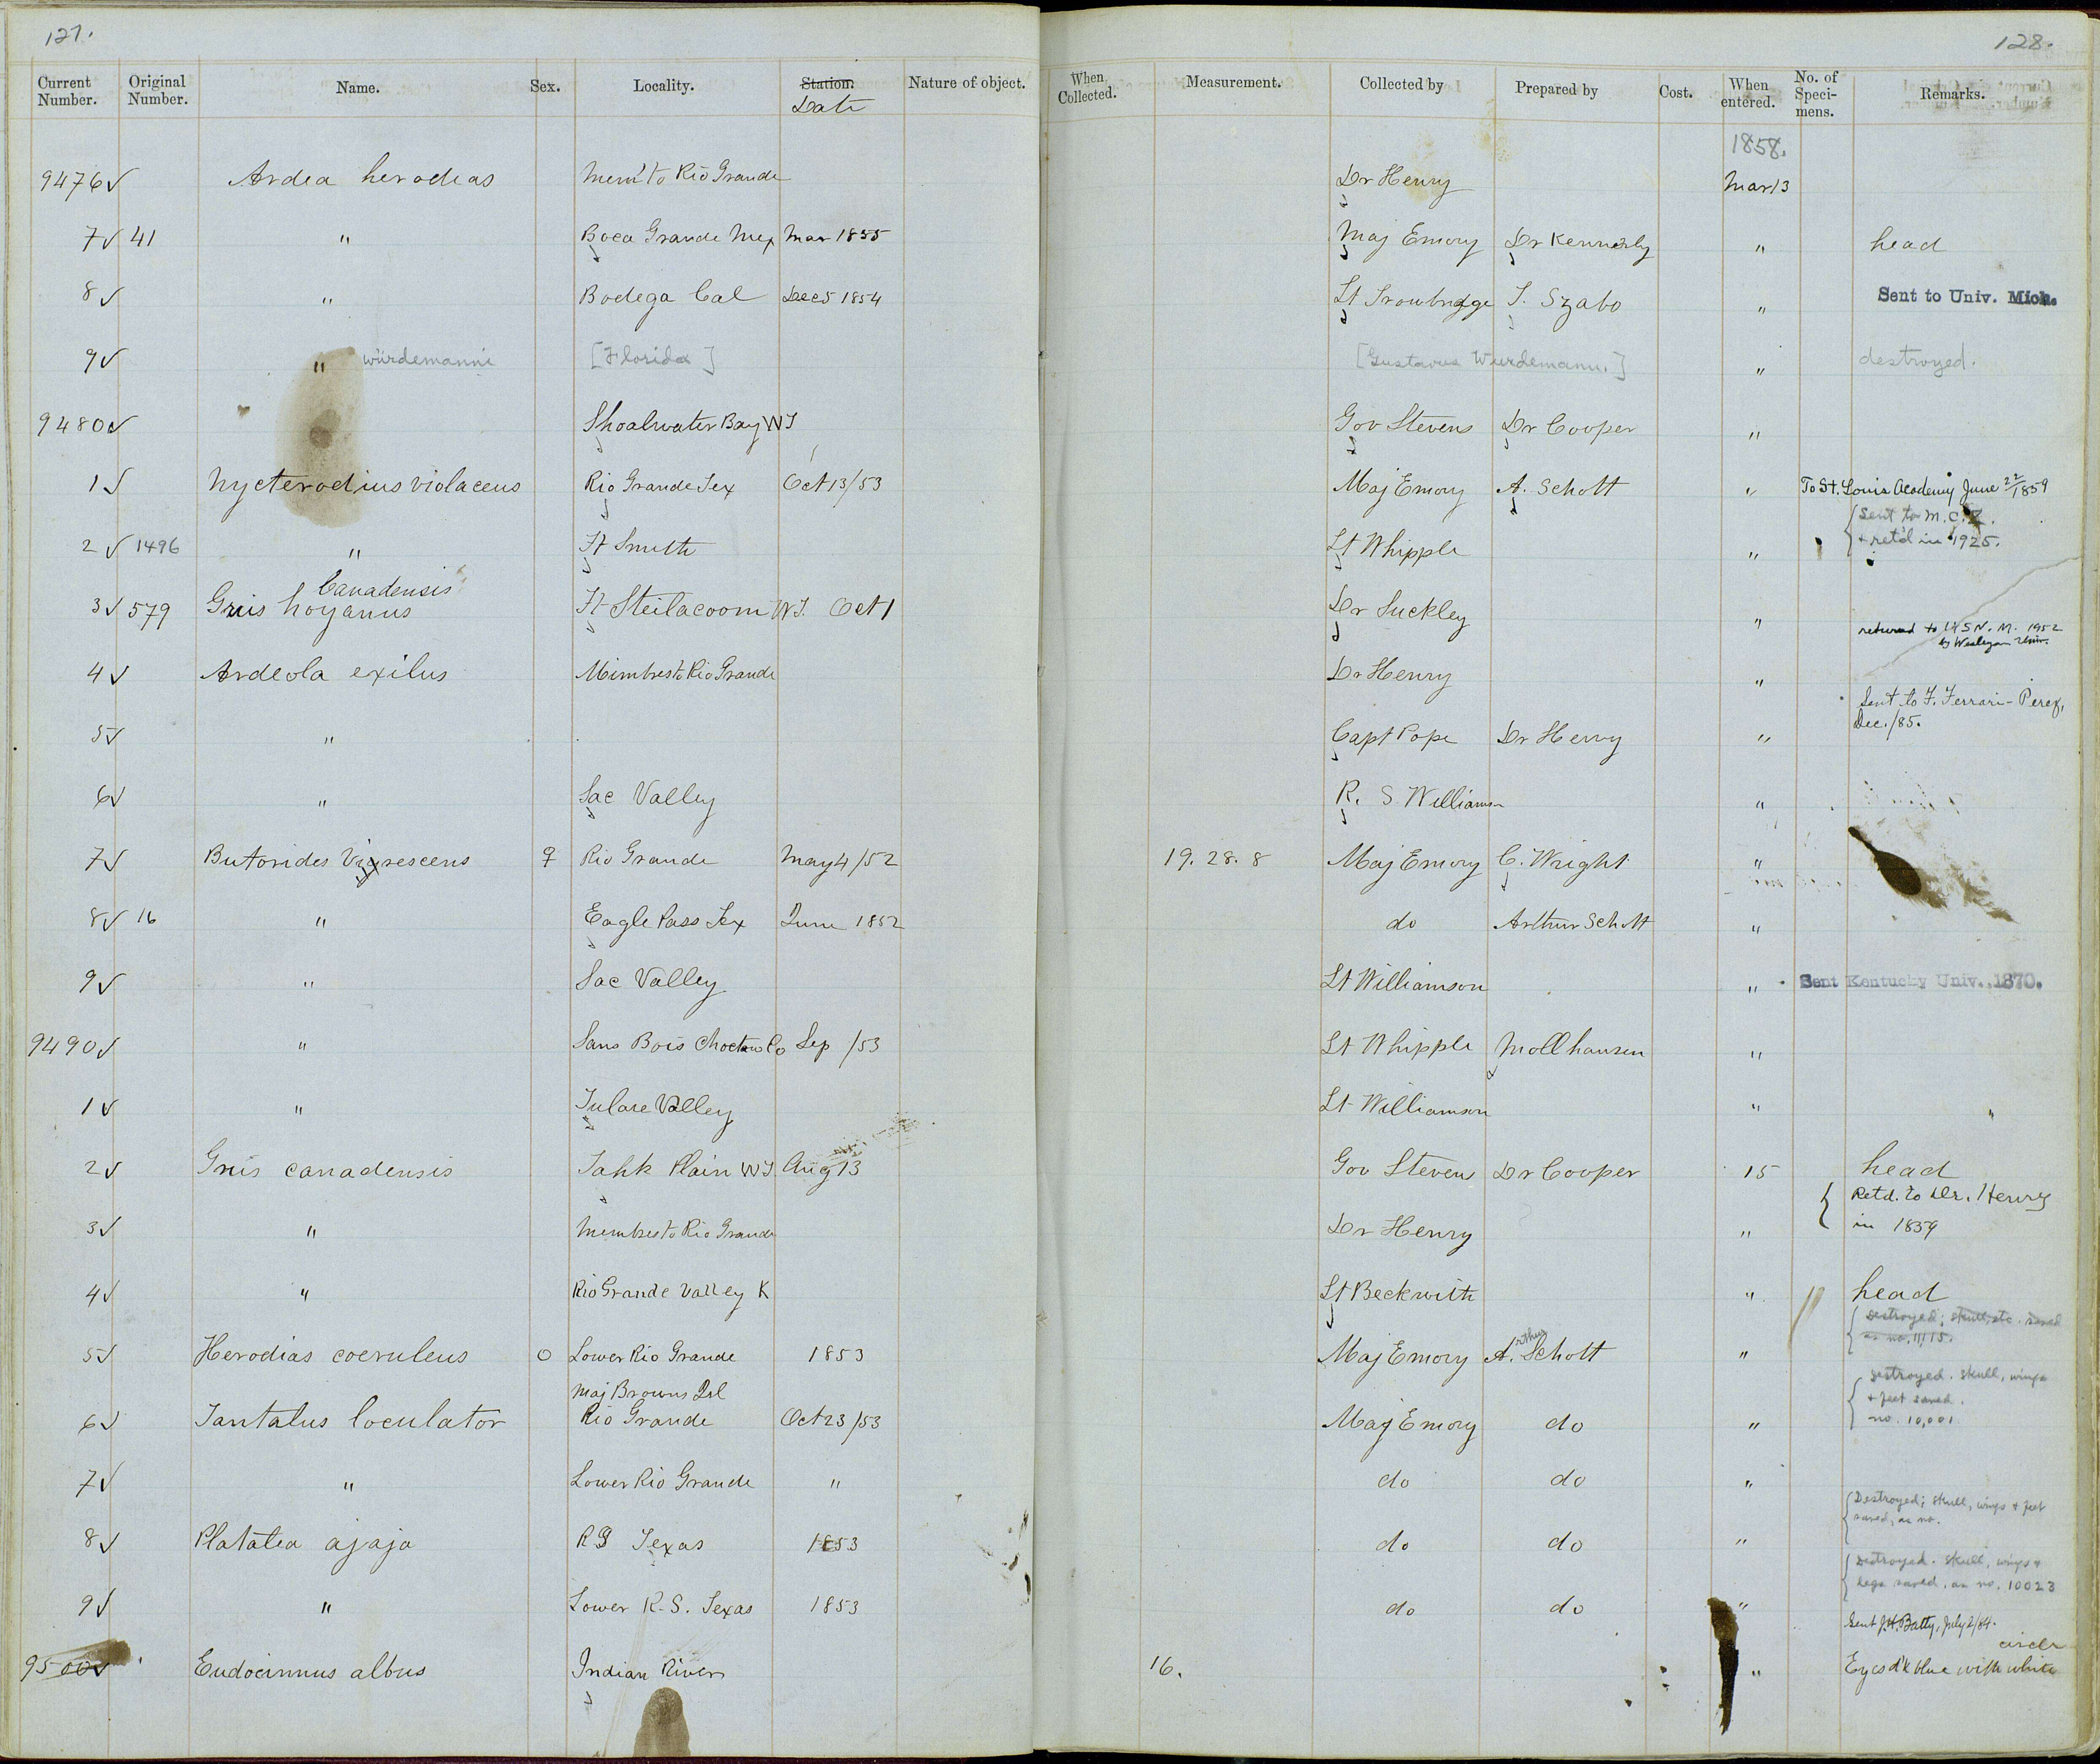 127.
128.
Current Number. Original Number. Name. Sex. Locality. Station. Date Nature of object. When Collected. Measurement. Collected by Prepared by Cost. When entered. No. of Specimens. Remarks.
1858.
9476✓ Ardea herodias to Rio Grande Dr Henry Mar 13
7✓ 41 " Boca Grande Mex Mar 1855 Maj Emory Dr Kennerly " head
8✓ " Bodega Cal Dec 5 1854 Lt Trowbridge T. Szabo " Sent to Univ. Mich.
9✓ " würdemanni [Florida] [Gustavus Wurdemann.] " destroyed.
9480✓ Shoalwater Bay W T Gov Stevens Dr Cooper "
1✓ Nycterodius violaceus Rio Grande Tex Oct 13/53 Maj Emory A. Schott " To St. Louis Academy June 22/1859
2✓ 1496 " Ft Smith Lt Whipple " {Sent to M.C.Z.
+ ret'd in 1925.
Canadensis
3✓ 579 Grus hoyanus Ft Steilacoom W T. Oct 1 Dr Suckley "
returned to U S N. M. 1952
by Wesleyan Univ.
4✓ Ardeola exilus Mimbres to Rio Grande Dr Henry "
Sent to F. Ferrari-Perez,
Dec./85.
5✓ " Capt Pope Dr Henry "
6✓ " Sac Valley R. S. Williamson "
7✓ Butorides Virescens ♀ Rio Grande May 4/52 19. 28. 8 Maj Emory C. Wright "
8✓ 16 " Eagle Pass Tex June 1852 do Arthur Schott "
9✓ " Sac Valley Lt Williamson " Sent Kentucky Univ., 1870.
9490✓ " Sans Bois Choctaw Co Sep /53 Lt Whipple Mollhausen "
1✓ " Tulare Valley Lt Williamson " "
2✓ Grus canadensis Tahk Plain W T. Aug 13 Gov Stevens Dr Cooper 15 head
3✓ " Mimbres to Rio Grande Dr Henry " {Retd. to Dr. Henry
in 1859
4✓ " Rio Grande Valley K Lt Beckwith " head
{Destroyed; skull, etc. saved
as no. 11,115.
5✓ Herodias coeruleus O Lower Rio Grande 1853 Maj Emory Arthur Schott "
{Destroyed. Skull, wings
+ feet saved.
no. 10,001
Maj Browns
6✓ Tantalus loculator Rio Grande Oct 23/53 Maj Emory do "
7✓ " Lower Rio Grande " do do "
{Destroyed; skull, wings + feet
saved, as no.
8✓ Platalea ajaja R G Texas 1853 do do "
{Destroyed. Skull, wings +
legs saved, as no. 10023
9✓ " Lower R. G. Texas 1853 do do "
Sent J.H. Batty, July 2/84.
circle
9500✓ Eudocimus albus Indian River 16. " Eyes d'k blue with white